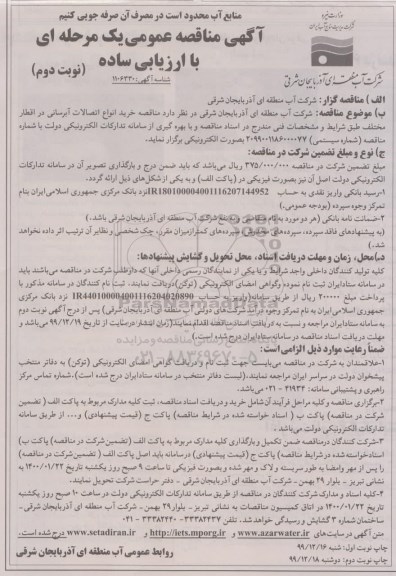 منابع آب محدود است در مصرف آن صرفه جویی کنیم
آگهی مناقصه عمومی یک مرحله ای
با ارزیابی ساده
(نوبت دوم)
شناسه آگهی: ۱۱۰۶۳۳۰
وزارت نیرو
شرکت آب منطقه ای آذربایجان شرقی
الف) مناقصه گزار: شرکت آب منطقه ای آذربایجان شرقی
ب) موضوع مناقصه: شرکت آب منطقه ای آذربایجان شرقی در نظر دارد مناقصه خرید انواع اتصالات آبرسانی در اقطار
مختلف طبق شرایط و مشخصات فنی مندرج در اسناد مناقصه و با بهره گیری از سامانه تدارکات الکترونیکی دولت با شماره
مناقصه (شماره سیستمی) ۲۰۹۹۰۰۱۱۸۶۰۰۰۰۷۷ بصورت الکترونیکی برگزار نماید.
ج) نوع و مبلغ تضمین شرکت در مناقصه:
مبلغ تضمین شرکت در مناقصه ۳۷۵/۰۰۰/۰۰۰ ریال می‌باشد که باید ضمن درج و بارگذاری تصویر آن در سامانه تدارکات
الکترونیکی دولت اصل آن نیز بصورت فیزیکی در (پاکت الف) و به یکی از شکل‌های ذیل ارائه گردد.
۱-رسید بانکی واریز نقدی به حساب IR180100004001116207144952 نزد بانک مرکزی جمهوری اسلامی ایران بنام
تمرکز وجوه سپرده (بودجه عمومی).
۲-ضمانت نامه بانکی (هر دو مورد به نام مناقصه و به نفع شرکت آب منطقه ای آذربایجان شرقی باشد.)
(به پیشنهادهای فاقد سپرده، سپرده‌های مخدوش، سپرده‌های کمتر از میزان مقرر، چک شخصی و نظایر آن ترتیب اثر داده نخواهد
شد.)
د) محل، زمان و مهلت دریافت اسناد، محل تحویل و گشایش پیشنهادها:
کلیه تولید کنندگان داخلی واجد شرایط و یا یکی از نمایندگان رسمی داخلی آنها که داوطلب شرکت در مناقصه می‌باشند باید
در سامانه ستاد ایران ثبت نام نموده و گواهی امضای الکترونیکی (توکن) دریافت نمایند. ثبت نام کنندگان در سامانه مذکور با
پرداخت مبلغ ۲۰۰۰۰۰ ریال از طریق سامانه (واریز به حساب IR440100004001116204020890 نزد بانک مرکزی
جمهوری اسلامی ایران به نام تمرکز وجوه درآمد شرکت‌های دولتی - شرکت آب منطقه ای آذربایجان شرقی) پس از درج آگهی نوبت دوم
به سامانه ستاد ایران مراجعه و نسبت به دریافت اسناد مناقصه اقدام نمایند
مهلت دریافت اسناد مناقصه در سامانه ستاد ایران درج شده است.)
ضمناً رعایت موارد ذیل الزامی است:
۱-علاقمندان به شرکت در مناقصه می‌بایست جهت ثبت نام و دریافت گواهی امضای الکترونیکی (توکن) به دفاتر منتخب
پیشخوان دولت در سراسر ایران مراجعه نمایند. (لیست دفاتر منتخب در سامانه ستاد ایران درج شده است). شماره تماس مرکز
راهبری و پشتیبانی سامانه: ۴۱۹۳۴-۰۲۱ می‌باشد.
۲-برگزاری مناقصه و کلیه مراحل فرآیند آن شامل خرید و دریافت اسناد مناقصه، ثبت کلیه مدارک مربوط به پاکت الف (تضمین
شرکت در مناقصه) پاکت ب (اسناد خواسته شده در شرایط مناقصه) پاکت ج (قیمت پیشنهادی) و.... از طریق سامانه
تدارکات الکترونیکی دولت می‌باشد.
۳-شرکت کنندگان در مناقصه ضمن تکمیل و بارگذاری کلیه مدارک مربوط به پاکت الف (تضمین شرکت در مناقصه) پاکت ب)
اسناد خواسته شده در شرایط مناقصه) پاکت ج (قیمت پیشنهادی) در سامانه باید اصل پاکت الف (تضمین شرکت در مناقصه)
را پس از مهر و امضا به طور سربسته و لاک و مهر شده و بصورت فیزیکی تا ساعت ۹ صبح روز یکشنبه تاریخ ۱۴۰۰/۰۱/۲۲ به
نشانی تبریز - بلوار ۲۹ بهمن - شرکت آب منطقه ای آذربایجان شرقی - دفتر حراست شرکت تحویل نمایند.
۴-کلیه اسناد و مدارک شرکت کنندگان در مناقصه از طریق سامانه تدارکات الکترونیکی دولت در ساعت ۱۰ صبح روز یکشنبه
تاریخ ۱۴۰۰/۰۱/۲۲ در اتاق کمیسیون مناقصات به نشانی تبریز - بلوار ۲۹ بهمن - شرکت آب منطقه ای آذربایجان شرقی -
ساختمان شماره ۳ گشایش و رسیدگی خواهد شد. تلفن: ۳۳۳۸۲۴۳۷-۳۳۳۸۲۴۴۰-۰۴۱
متن آگهی در سایت‌های www.azarwater.ir و http://iets.mporg.ir و www.setadiran.ir درج شده است.
چاپ نوبت اول: شنبه ۹۹/۱۲/۱۶
چاپ نوبت دوم: دوشنبه ۹۹/۱۲/۱۸
روابط عمومی آب منطقه ای آذربایجان شرقی